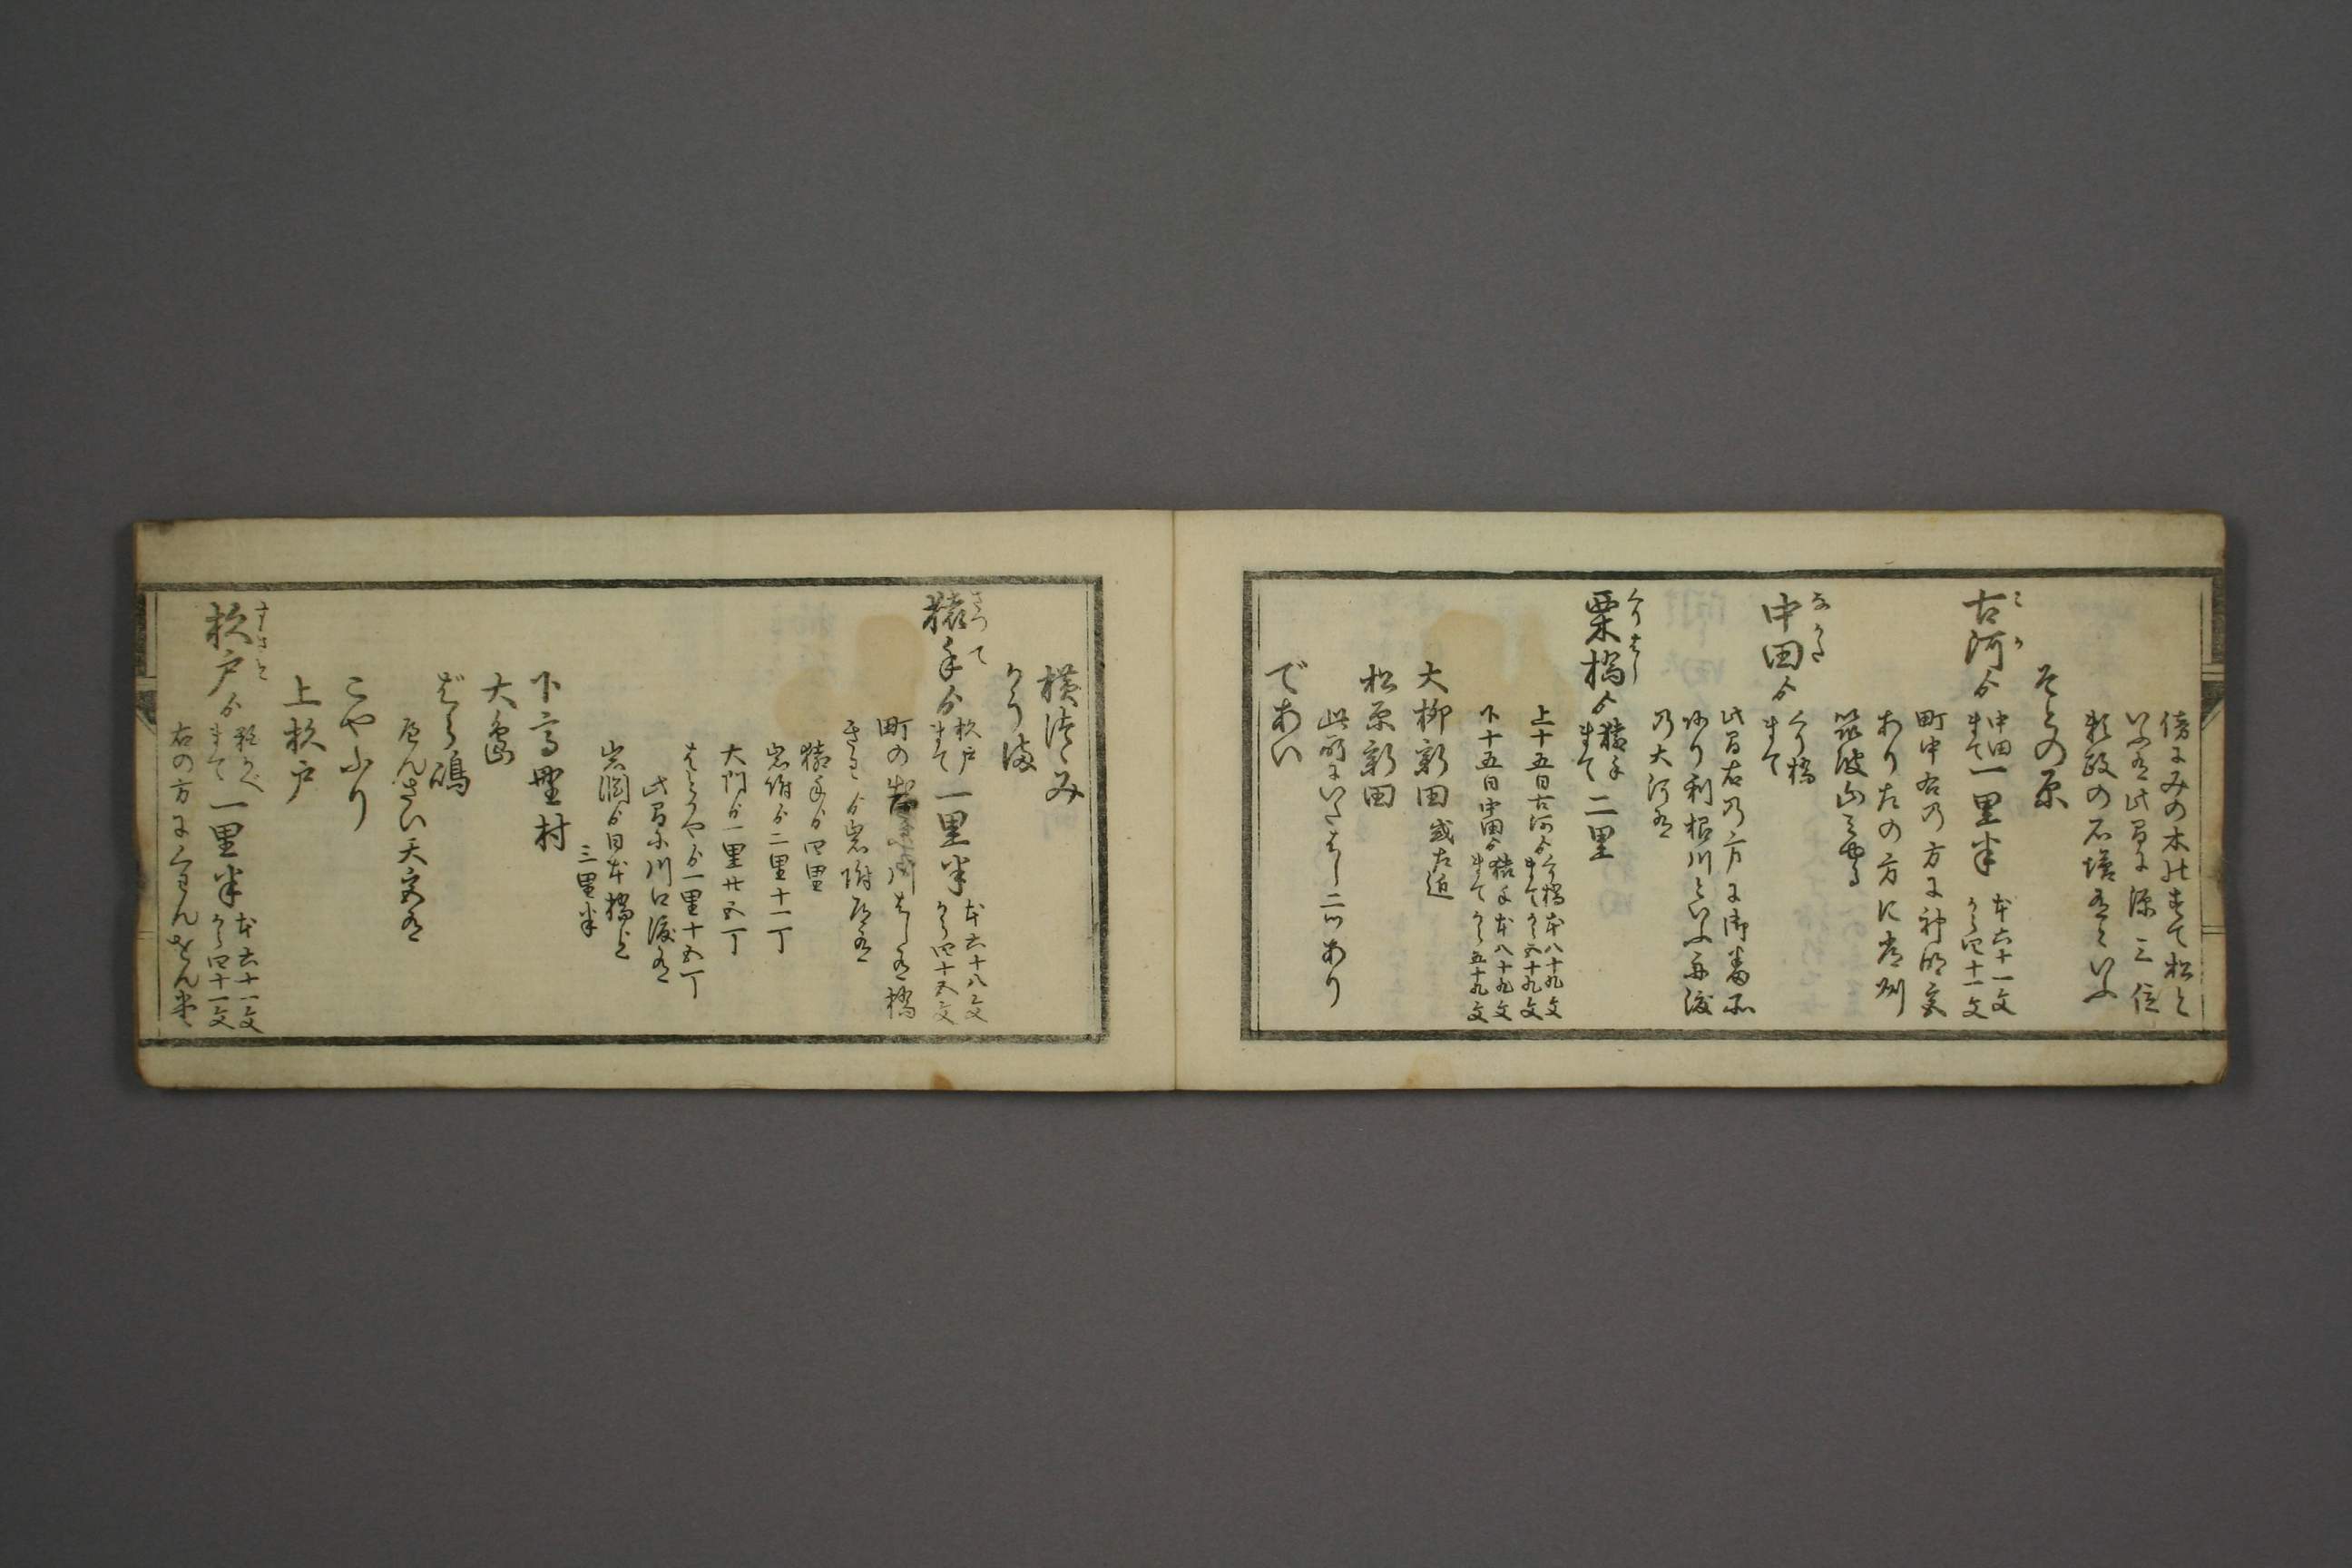 傍にみの木
いふ有此間に源三位
頼政の石塔有といふ
の原
こが
古河より中田まで一里半 本六十一文 から四十一文
町中右の方に神明宮
あり左の方に常州
筑波山みゆる
なかた
中田よりくり橋まで
此間右の方に御番所
有り利根川といふ舟渡
の大河有
くりはし
栗橋より猿手まで二里
上十五日古河よりくり橋まで 本八十九文 から五十九文
下十五日中田より猿手まで 本八十九文 から五十九文
大柳新田 或左近
松原新田
此所にいたばし二ツあり
であい
横つゝみ
かうま
さつて
猿手より杉戸まで一里半 本六十八文 から四十五文
町の 川はし有橋
さつてより岩附道有
猿手より四里
岩附より二里十一丁
大門より一里廿五丁
はとかやより一里十五丁
此間に川口渡有
岩渕より日本橋迄
三里半
下高野村
大島
ばら嶋
べんざい天宮有
こやふり
上杉戸
すぎと
杉戸より粕かべまで一里半 本六十一文 から四十一文
右の方にくわんをん堂